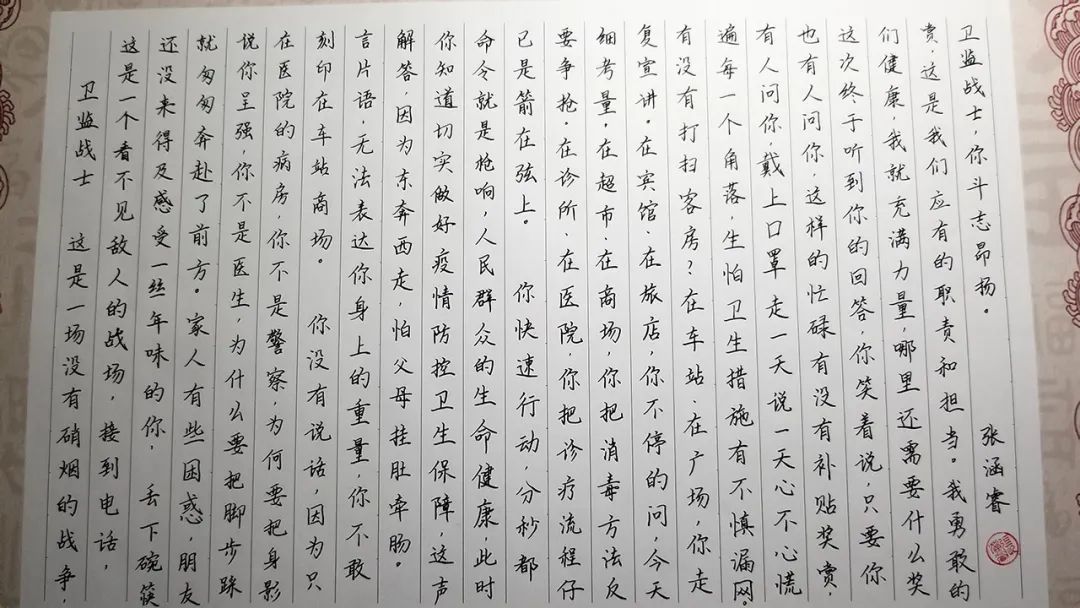 卫监战士　这是一场没有硝烟的战争，
这是一个看不见敌人的战场，接到电话，
还没来得及感受一丝年味的你，丢下碗筷
就匆匆奔赴了前方。　家人有些困惑，朋友
说你呈强，你不是医生，为什么要把脚步踩
在医院的病房，你不是警察，为何要把身影
刻印在车站商场。　你没有说话，因为只
言片语，无法表达你身上的重量，你不敢
解答，因为东奔西走，怕父母挂肚牵肠。
你知道切实做好疫情防控卫生保障，这声
命令就是枪响，人民群众的生命健康，此时
已是箭在弦上。　你快速行动，分秒都
要争抢。在诊所、在医院，你把诊疗流程仔
细考量，在超市、在商场，你把消毒方法反
复宣讲。在宾馆、在旅店，你不停的问，今天
有没有打扫客房？在车站、在广场，你走
遍每一个角落，生怕卫生措施有不慎漏网。
有人问你，戴上口罩走一天说一天心不心慌
也有人问你，这样的忙碌有没有补贴奖赏，
这次终于听到你的回答，你笑着说，只要你
们健康，我就充满力量，哪里还需要什么奖
赏这是我们应有的职责和担当。我勇敢的
卫监战士，你斗志昂扬。　张涵睿